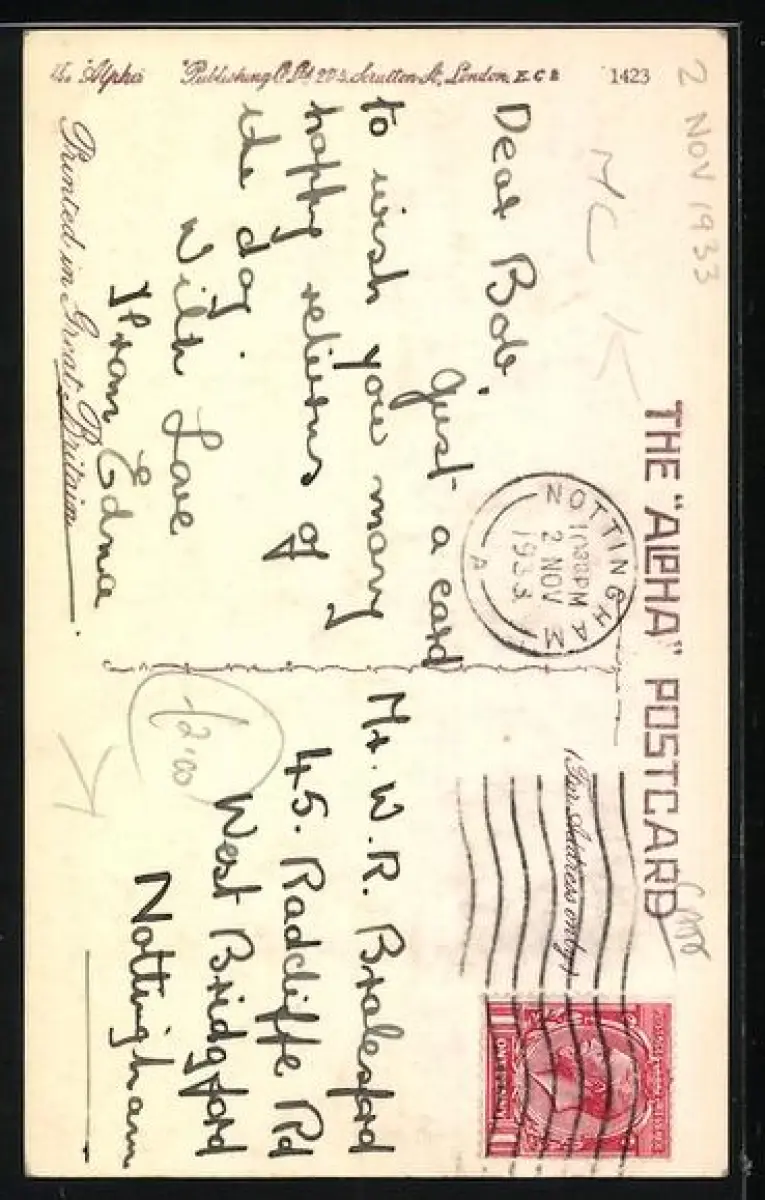 2 NOV 1933
THE "ALPHA" POSTCARD
(For Address only)
NOTTINGHAM
10 30 PM
2 NOV
1933
A
Dear Bob,
Just a card
to wish you many
happy returns of
the day.
With Love
from Edna
Mr. W. R. Bralesford
45. Radcliffe Rd
West Bridgford
Nottingham
£2.00
Printed in Great Britain
"Alpha" Publishing Co. Ltd Scrutton St, London, E.C.2
1423